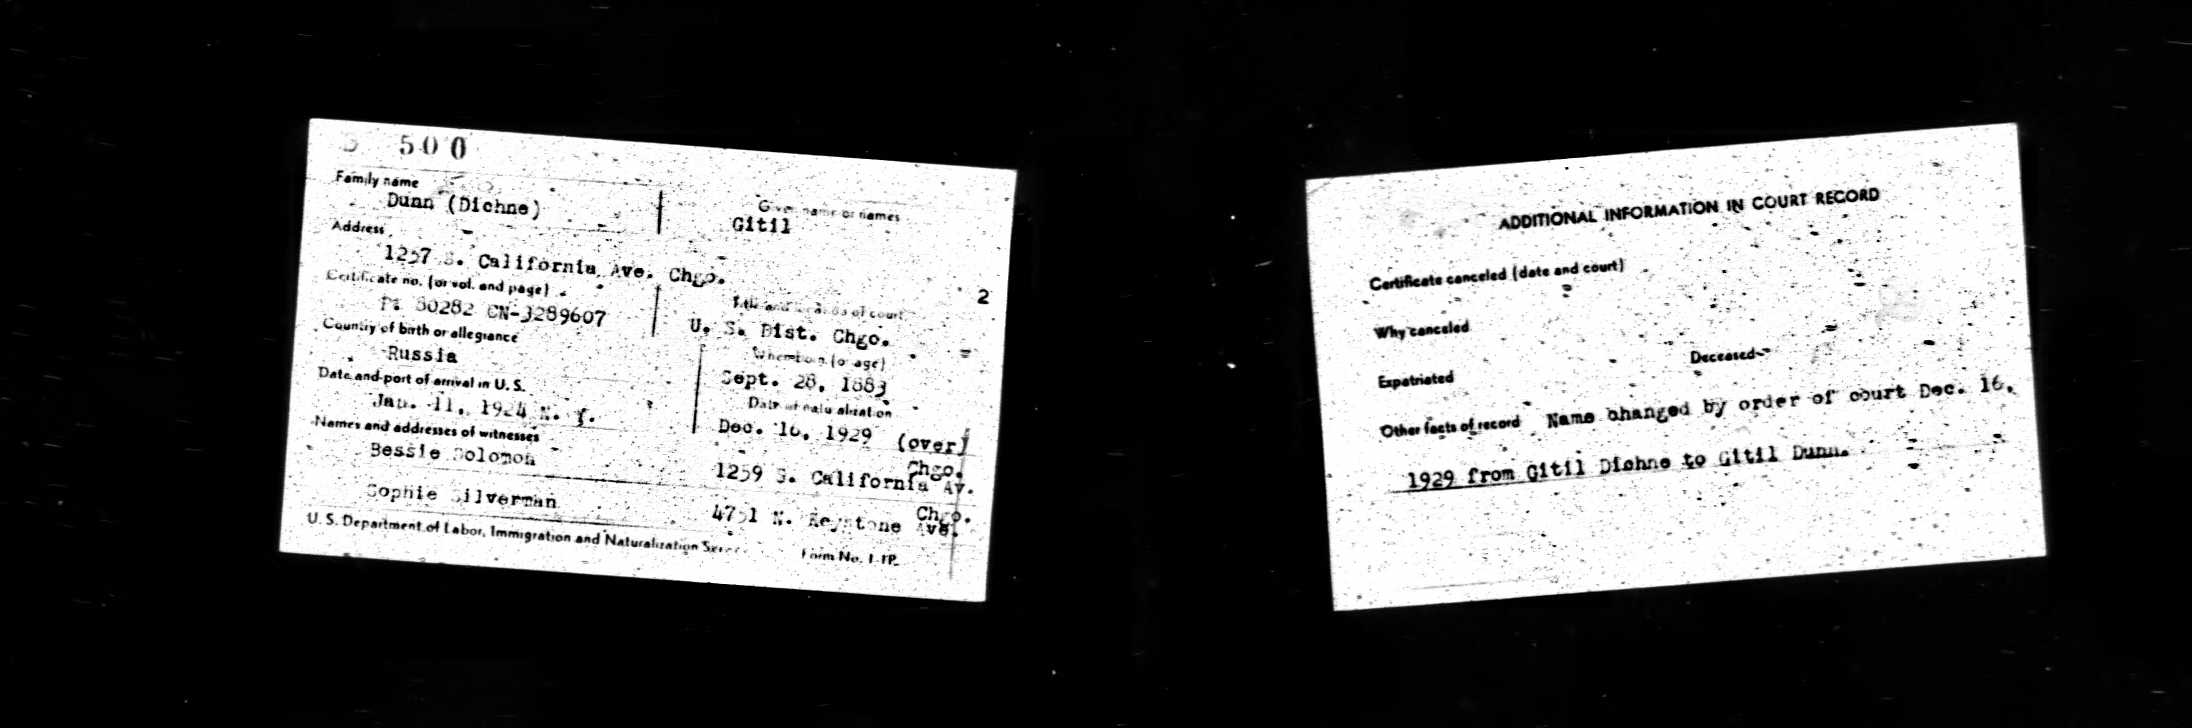 D 500
Family name
Given name or names
Dunn (Dichne)
Gitil
Address
1257 S. California Ave. Chgo.
2
Certificate no. (or vol. and page)
Title and location of court
P. 80282 CN-3289607
U. S. Dist. Chgo.
Country of birth or allegiance
When born (or age)
Russia
Sept. 28, 1883
Date and port of arrival in U. S.
Date of naturalization
Jan. 11, 1924 N. Y.
Dec. 16, 1929 (over)
Names and addresses of witnesses
Chgo.
Bessie Solomon
1259 S. California Av.
Chgo.
Sophie Silverman
4751 N. Keystone Ave.
U. S. Department of Labor, Immigration and Naturalization Service
Form No. 1-IP.
ADDITIONAL INFORMATION IN COURT RECORD
Certificate canceled (date and court)
Why canceled
Expatriated
Deceased
Other facts of record Name changed by order of court Dec. 16,
1929 from Gitil Dichne to Gitil Dunn.